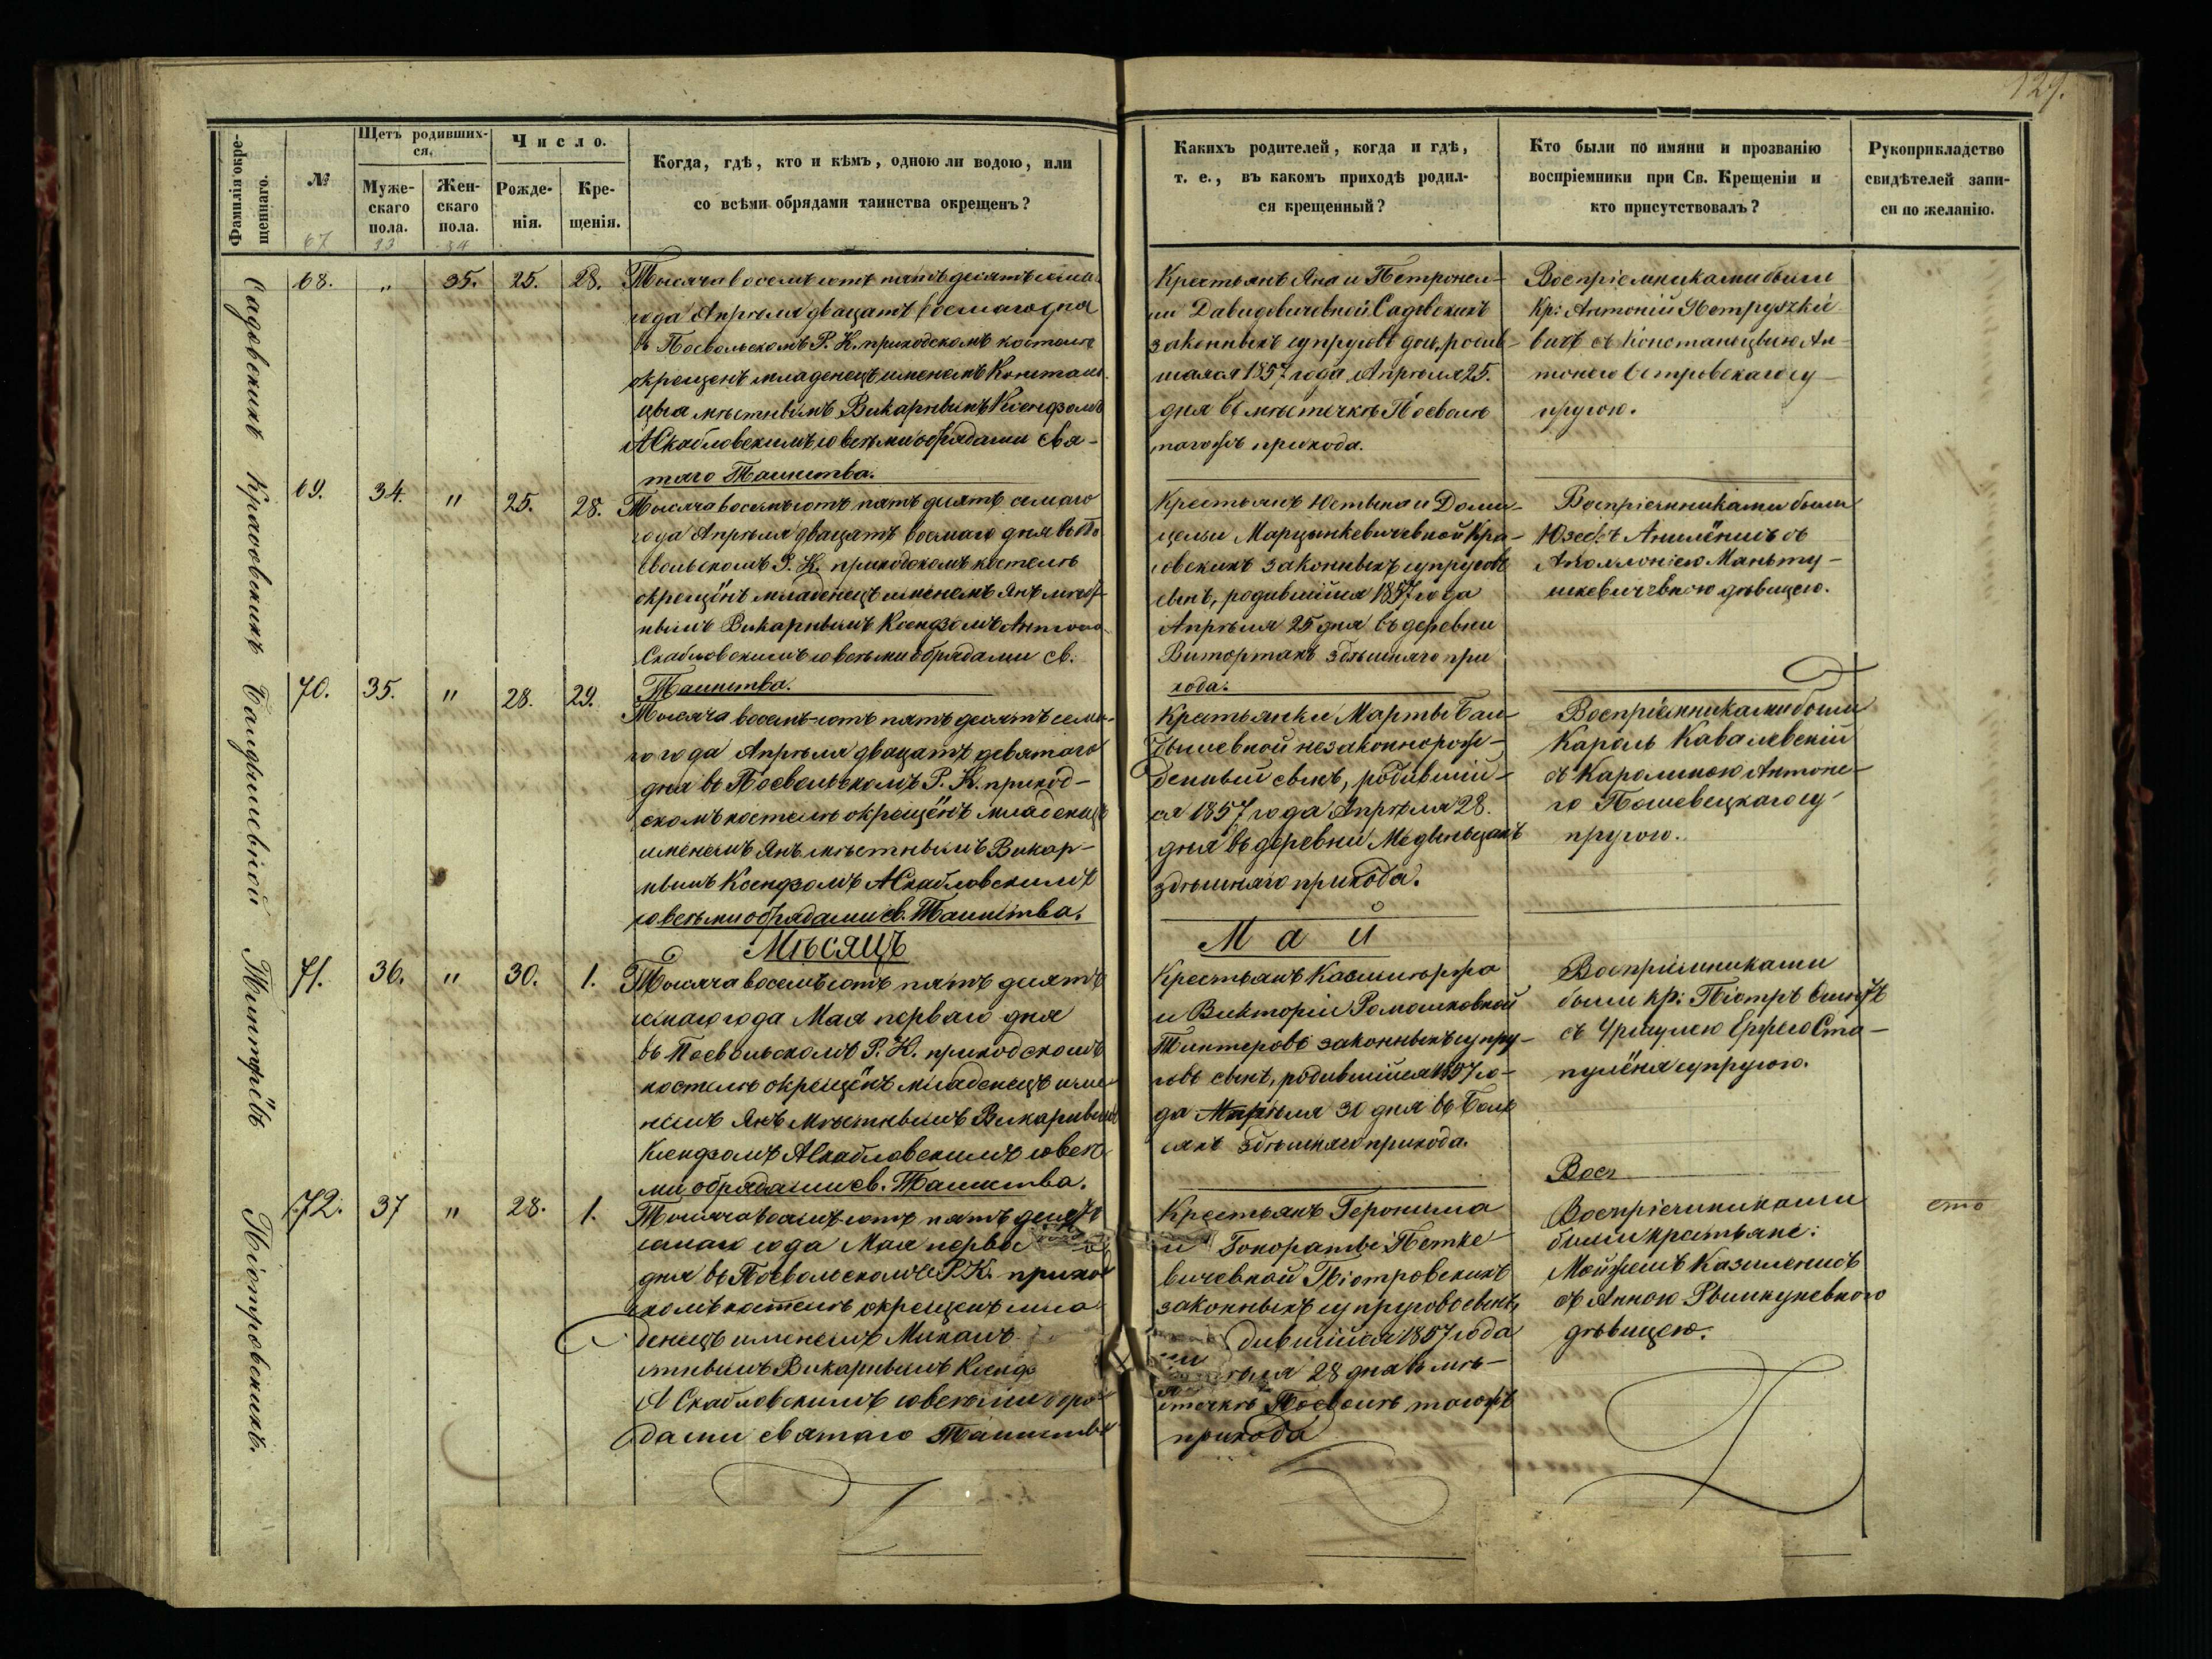 129.
Фамилія окре-
щеннаго.
№
Щетъ родивших-
ся.
Муже-
скаго
пола.
Жен-
скаго
пола.
Число.
Рожде-
нія.
Кре-
щенія.
Когда, гдѣ, кто и кѣмъ, одною ли водою, или
со всѣми обрядами таинства окрещенъ?
Какихъ родителей, когда и гдѣ,
т. е., въ какомъ приходѣ родил-
ся крещенный?
Кто были по имяни и прозванію
воспріемники при Св. Крещеніи и
кто присутствовалъ?
Рукоприкладство
свидѣтелей запи-
си по желанію.
67 33 34
Садовскихъ
68. " 35. 25. 28.
Тысяча восемьсотъ пятьдесятъ седма
года Апрѣля двацать восмаго дня
въ Посвольскомъ Р. К. приходскомъ костелѣ
окрещенъ младенецъ именемъ Констан
ція мѣстнымъ Викарнымъ Ксендзомъ
А Скабловскимъ со всѣми обрядами свя-
таго Таинства.
Крестьянъ Яна и Петронел-
ли Давидовичовной Садовскихъ
законныхъ супруговъ дочь, родив-
шаяся 1857 года Апрѣля 25.
дня въ мѣстечкѣ Посволѣ
тогожъ прихода.
Воспріемниками были
Кр: Антоній Петрушкѣ
вичъ съ Констанціею Ан-
тонего Петровскаго су-
пругою.
Красовскихъ
69. 34. " 25. 28.
Тысяча восемьсотъ пятьдесятъ семаго
года Апрѣля двацать восмаго дня въ По
свольскомъ Р. К. приходскомъ костелѣ
окрещёнъ младенецъ именемъ Янъ мѣст
нымъ Викарнымъ Ксендзомъ Антон
Скабловскимъ со всѣми обрядами св.
Таинства.
Крестьянъ Юстына и Доми-
целіи Марцинкевичевной Кра-
совскихъ законныхъ супруговъ
сынъ, родившійся 1857 года
Апрѣля 25 дня въ деревни
Витортахъ здѣшняго при
хода.
Воспріемниками были
Юзефъ Анилёнисъ съ
Аполлоніею Маньту-
шкевичевною дѣвицею.
Балдышевной
70. 35. " 28. 29.
Тысяча восемь-сотъ пятьдесятъ семи-
го года Апрѣля двацать девятаго
дня въ Посвольскомъ Р. К. приход-
скомъ костелѣ окрещёнъ младенецъ
именемъ Янъ мѣстнымъ Викар-
нымъ Ксендзомъ А Скабловскимъ
со всѣми обрядами св. Таинства.
Крестьянки Марты Бал-
дышевной незаконнорож-
денный сынъ, родившій-
ся 1857 года Апрѣля 28.
дня въ деревни Медвеньцахъ
здѣшняго прихода.
Воспріемниками были
Кароль Кавалевскій
съ Каролиною Антоне-
го Пошевецкаго су-
пругою.
Мѣсяцъ
Май
Тинтрёвъ
71. 36. " 30. 1.
Тысяча восемьсотъ пятьдесятъ
семаго года Мая перваго дня
въ Посвольскомъ Р. К. приходскомъ
костелѣ окрещёнъ младенецъ име
немъ Янъ мѣстнымъ Викарнымъ
Ксендзомъ А Скабловскимъ со всѣ
ми обрядами св. Таинства.
Крестьянъ Казиміержа
и Викторіи Ромашковной
Тинтеровъ законныхъ супру-
говъ сынъ, родившійся 1857 го-
да Апрѣля 30 дня въ
здѣшняго прихода.
Воспріемниками
были кр: Піотръ
съ Уршулею Ержего Ста-
пулёня супругою.
Восп
Піотровскихъ.
72. 37 " 28. 1.
Тысяча восемьсотъ пятьдесятъ
семаго года Мая перваго
дня въ Посвольскомъ Р. К. приход
скомъ костелѣ окрещенъ мла
денецъ именемъ Михалъ
стнымъ Викарнымъ Ксендз
А Скабловскимъ со всѣми обря
дами святаго Таинства
Крестьянъ Геронима
и Гонораты Петке
вичевной Піотровскихъ
законныхъ супруговъ сынъ,
дившійся 1857 года
рѣля 28 дня въ мѣ-
стечкѣ Посволѣ тогожъ
прихода
Воспріемниками
были крестьяне:
Мойжешъ Казиленисъ
съ Анною Рымкуневною
дѣвицею.
сто